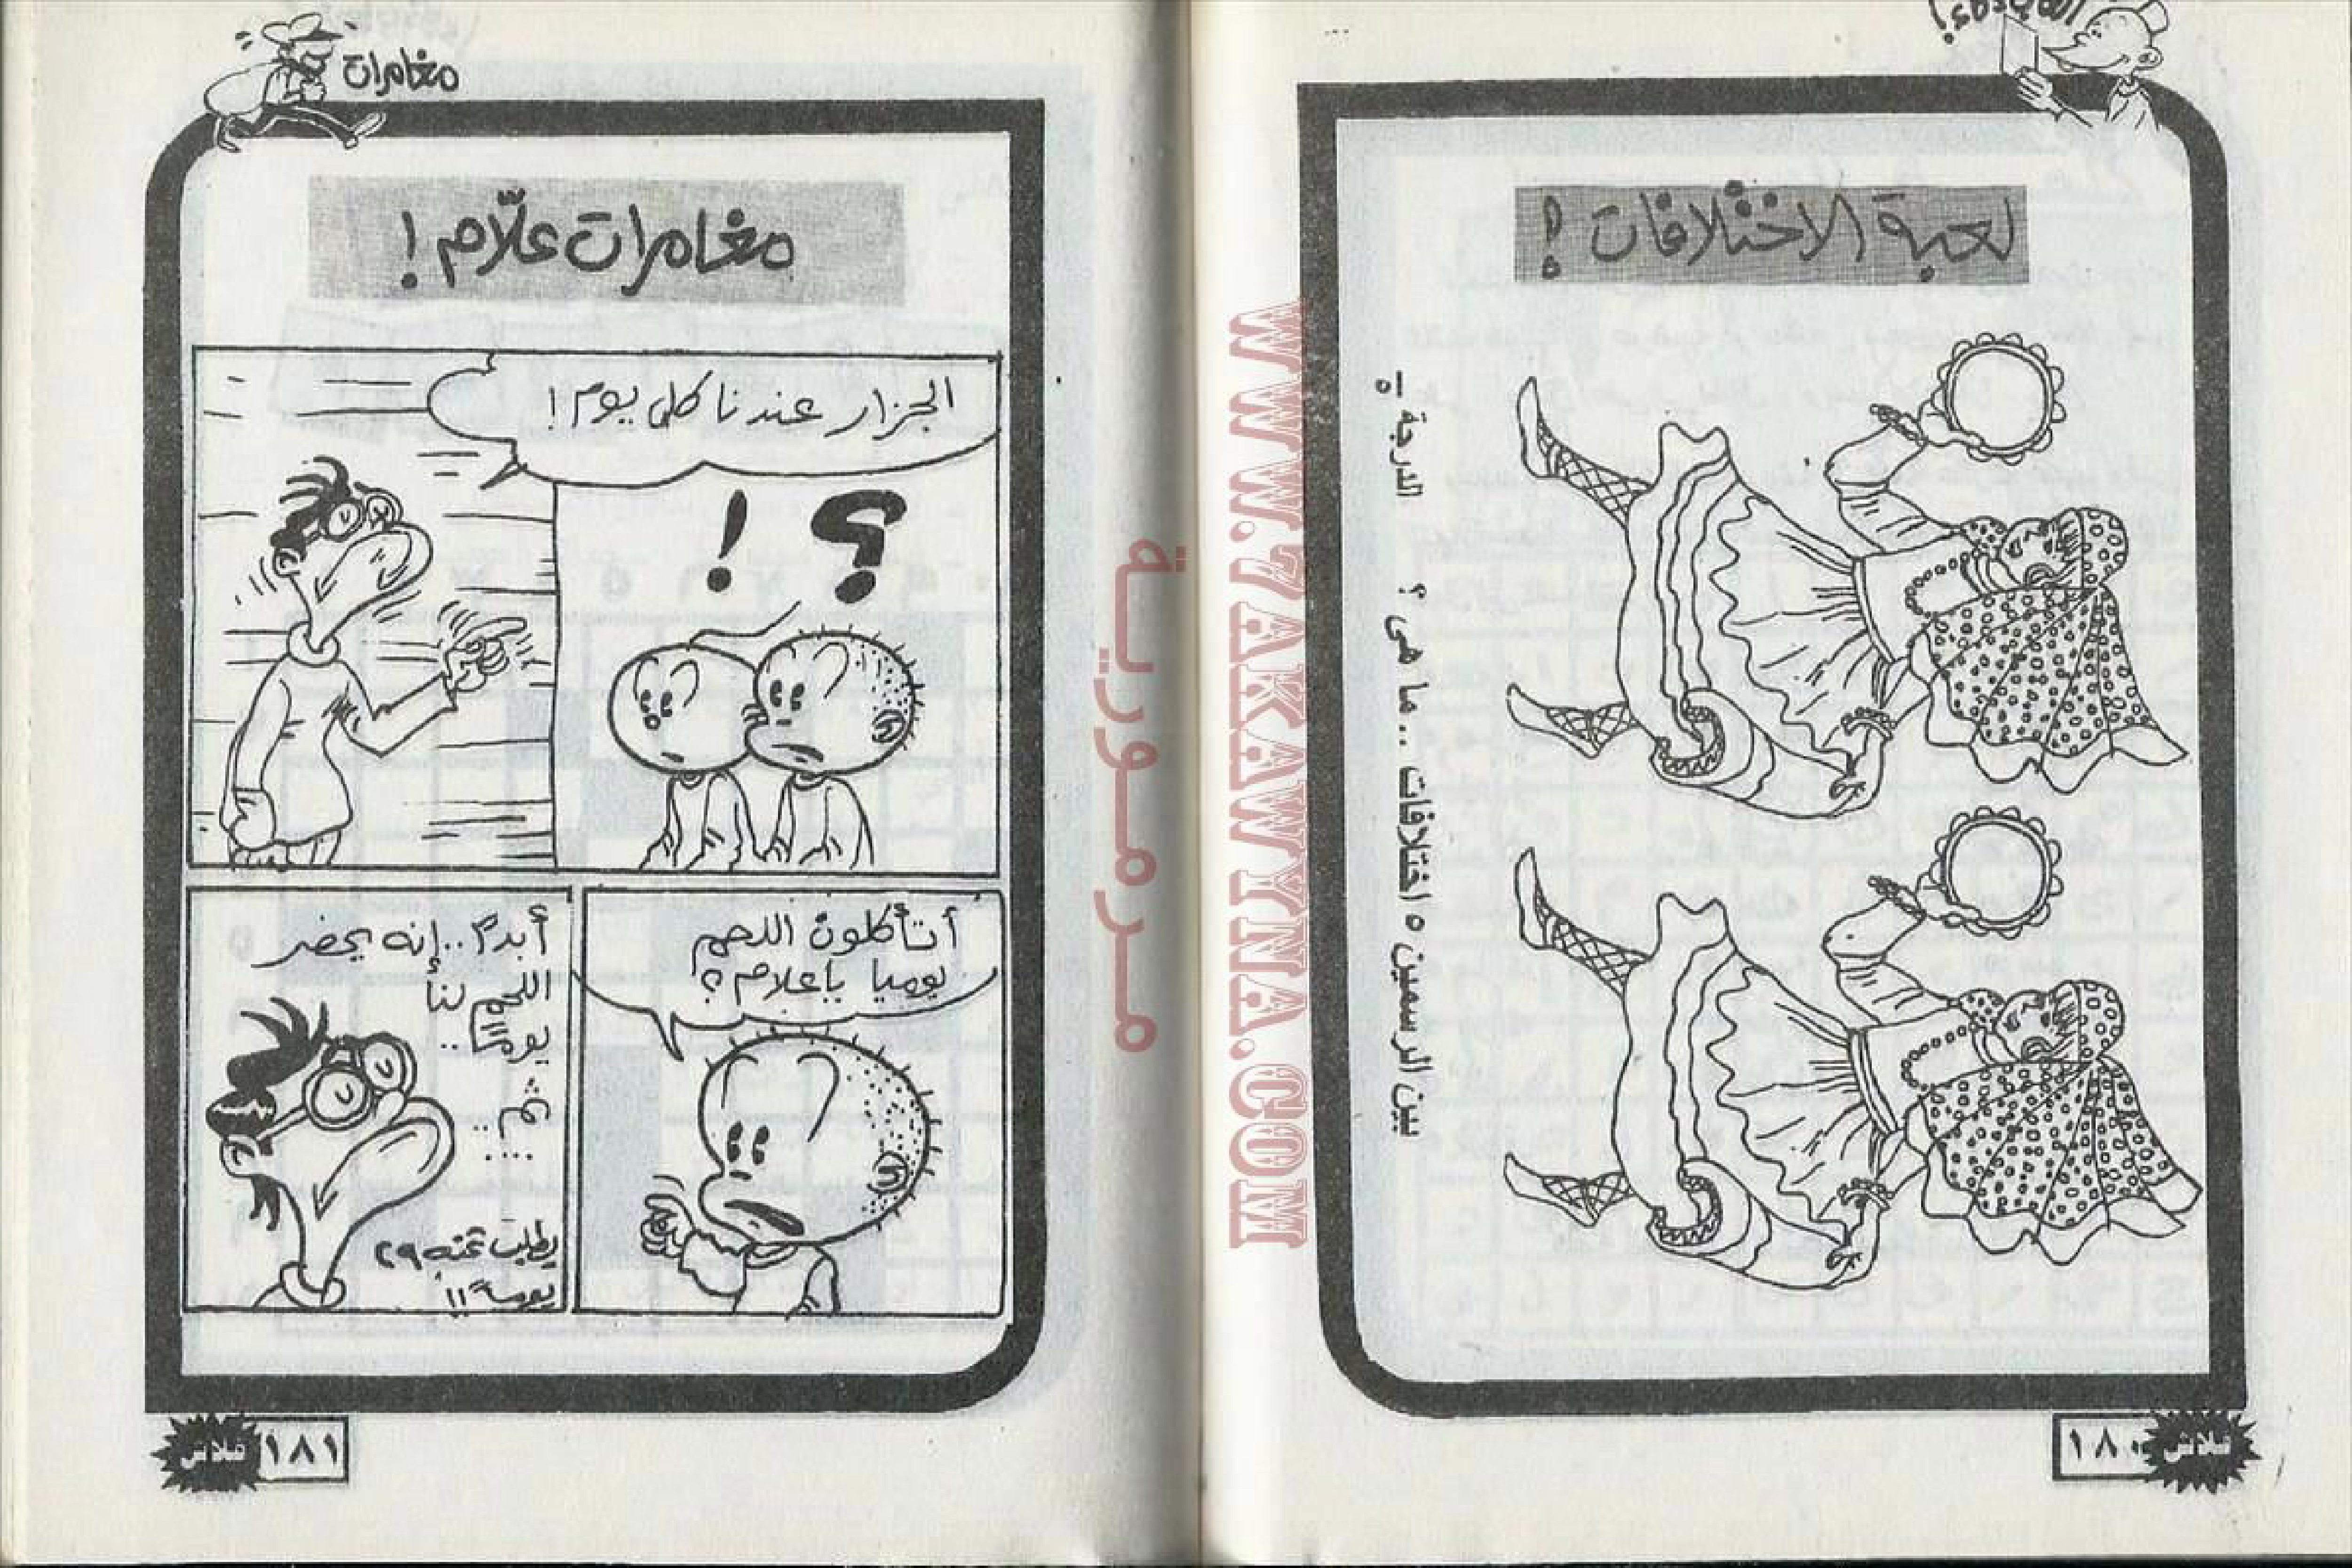 لعبة الاختلافات !
بين الرسمين ٥ اختلافات .. ما هى ؟
الدرجة ٥
١٨٠
فلاش
WWW.7AKAWYNA.COM
مرمورية
مغامرات
مغامرات علّام !
الجزار عندنا كل يوم !
؟ !
أتأكلون اللحم
يوميا يا علام ؟
أبداً .. إنه يحضر
اللحم لنا
يوماً ..
ثم ..
....
يطلب ثمنه ٢٩
يوماً !!
١٨١
فلاش